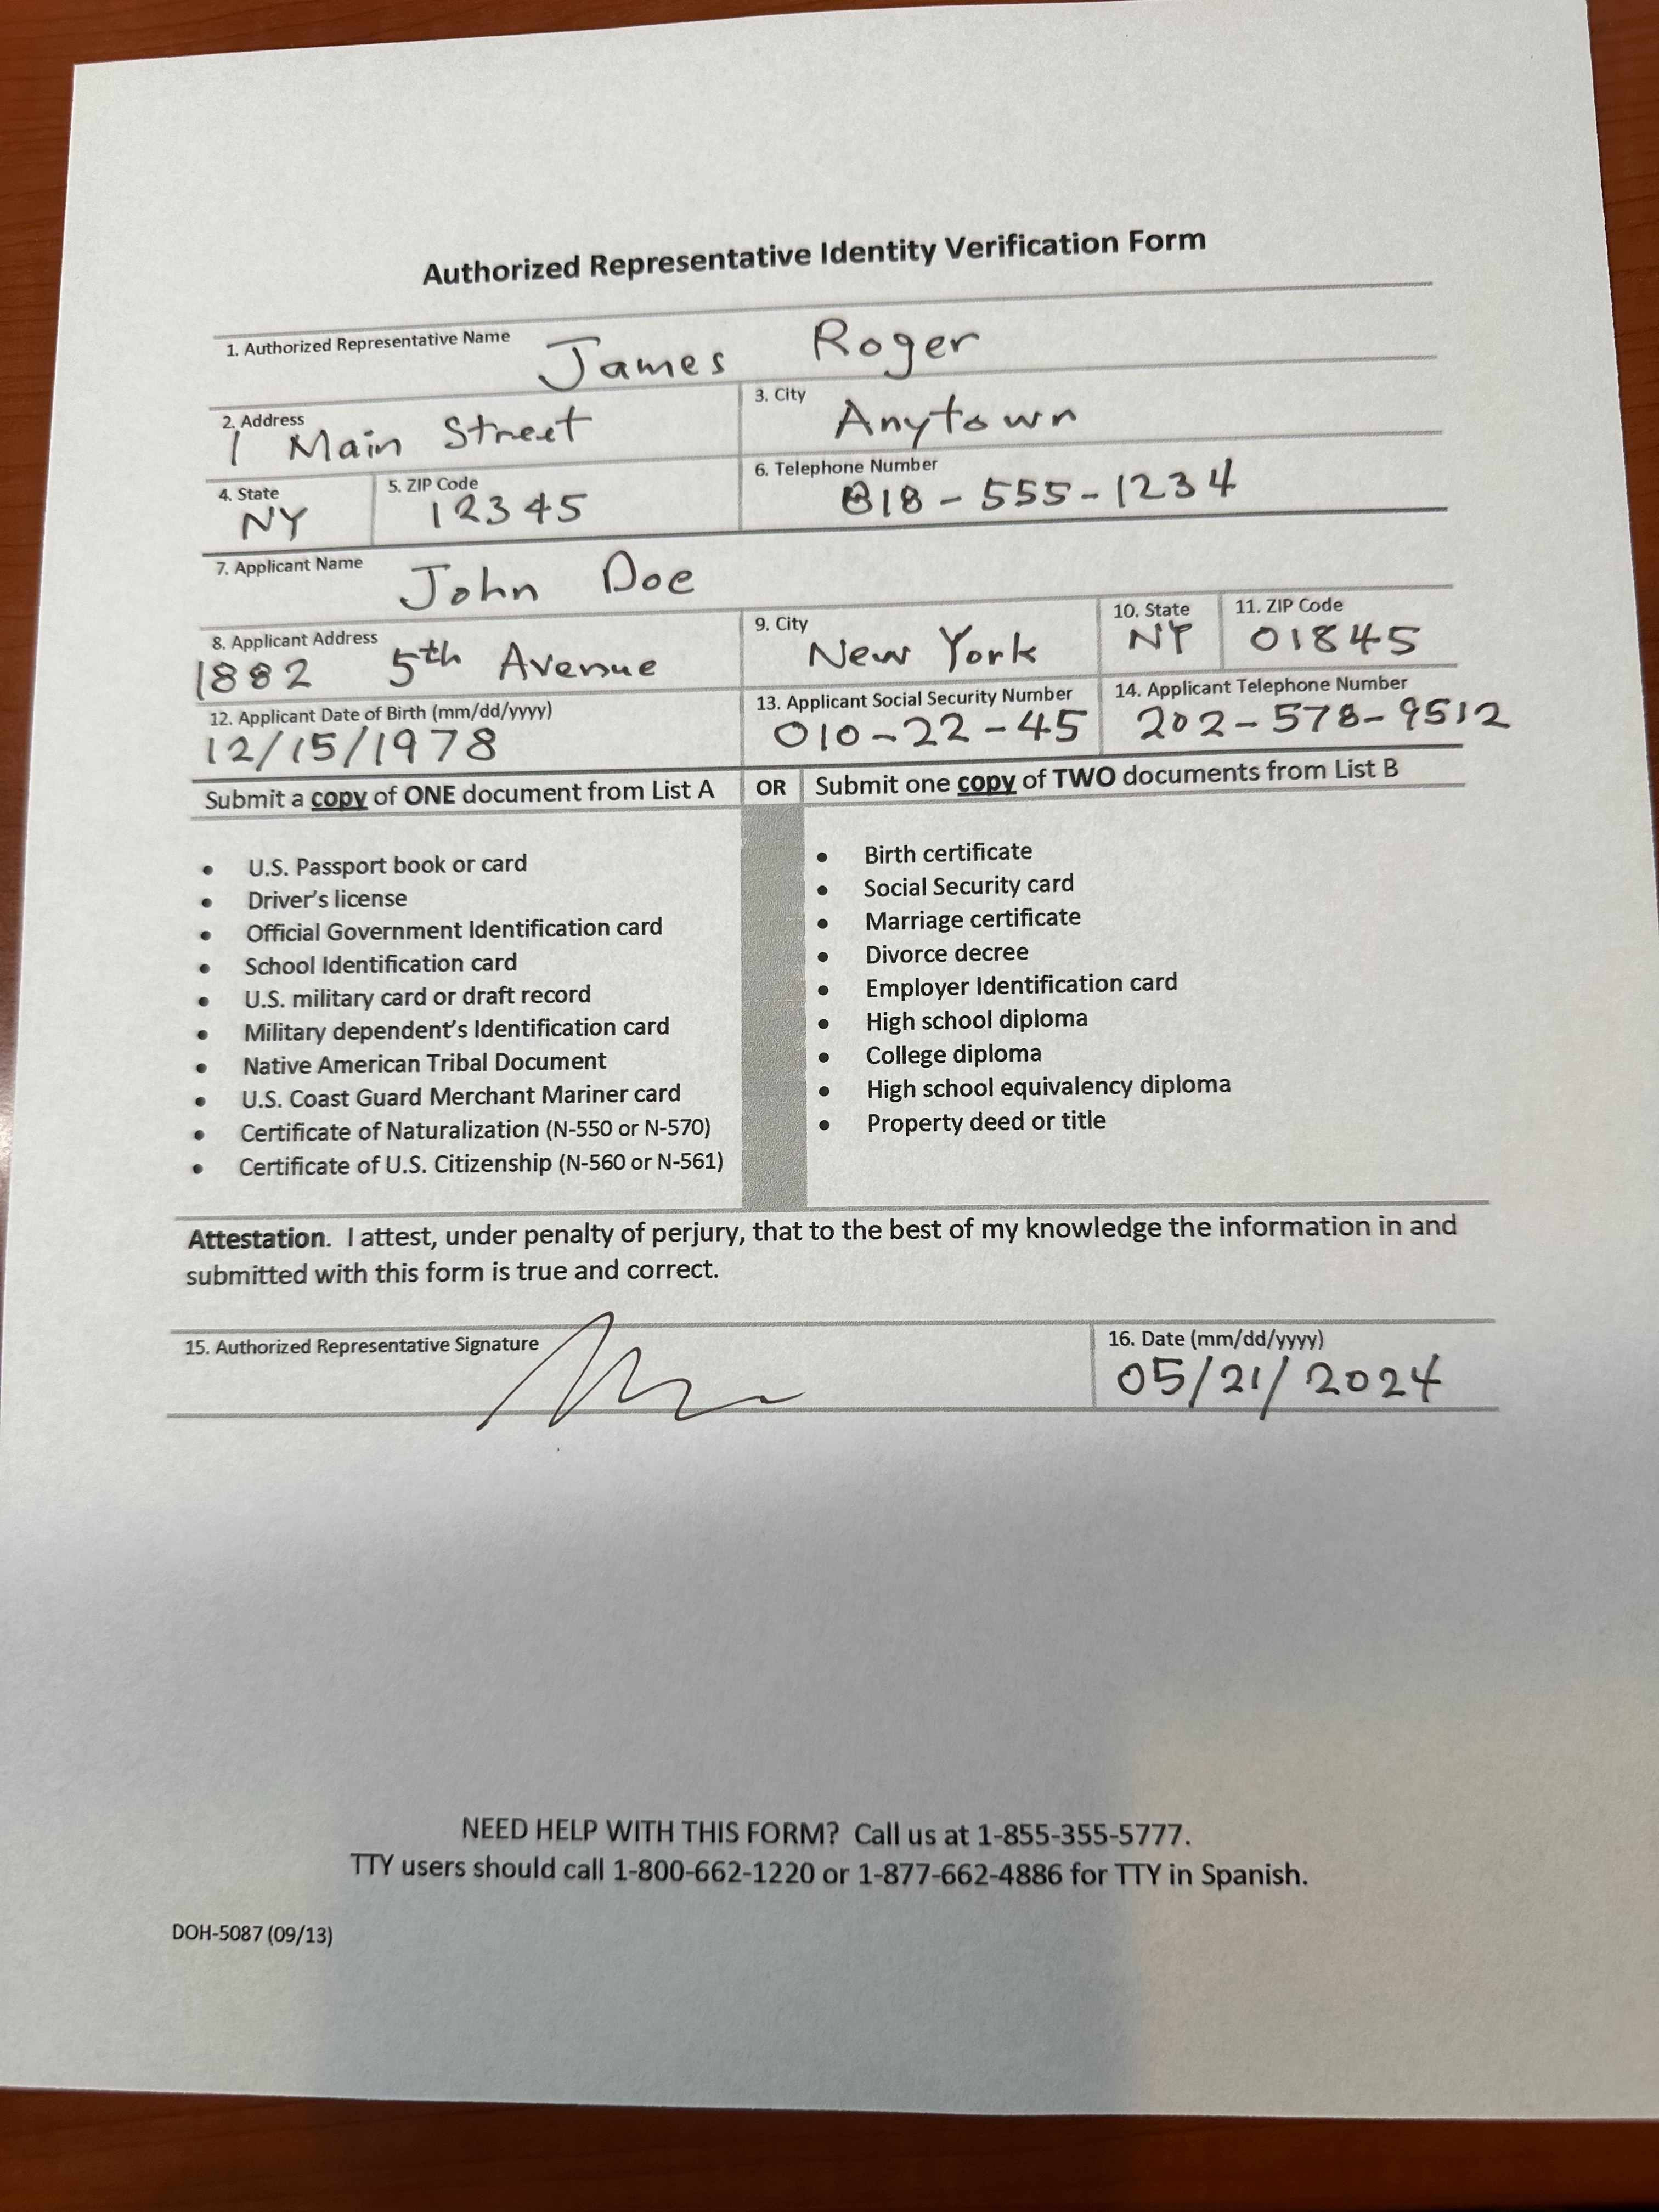 Authorized Representative Identity Verification Form
1. Authorized Representative Name James Roger
2. Address 1 Main Street 3. City Anytown
4. State NY 5. ZIP Code 12345 6. Telephone Number 818-555-1234
7. Applicant Name John Doe
8. Applicant Address 1882 5th Avenue 9. City New York 10. State NY 11. ZIP Code 01845
12. Applicant Date of Birth (mm/dd/yyyy) 12/15/1978 13. Applicant Social Security Number 010-22-45 14. Applicant Telephone Number 202-578-9512
Submit a copy of ONE document from List A OR Submit one copy of TWO documents from List B
• U.S. Passport book or card
• Driver's license
• Official Government Identification card
• School Identification card
• U.S. military card or draft record
• Military dependent's Identification card
• Native American Tribal Document
• U.S. Coast Guard Merchant Mariner card
• Certificate of Naturalization (N-550 or N-570)
• Certificate of U.S. Citizenship (N-560 or N-561)
• Birth certificate
• Social Security card
• Marriage certificate
• Divorce decree
• Employer Identification card
• High school diploma
• College diploma
• High school equivalency diploma
• Property deed or title
Attestation. I attest, under penalty of perjury, that to the best of my knowledge the information in and
submitted with this form is true and correct.
15. Authorized Representative Signature 16. Date (mm/dd/yyyy) 05/21/2024
NEED HELP WITH THIS FORM? Call us at 1-855-355-5777.
TTY users should call 1-800-662-1220 or 1-877-662-4886 for TTY in Spanish.
DOH-5087 (09/13)